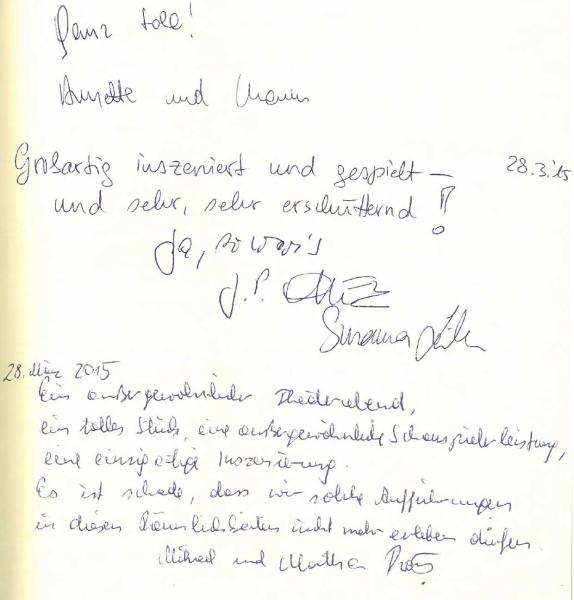 Ganz toll!
Annette und
Großartig inszeniert und gespielt – 28.3.15
und sehr, sehr erschütternd!
Ja, so war's
J. P.
Susanna
28. März 2015
Ein außergewöhnlicher Theaterabend,
ein tolles Stück, eine außergewöhnliche Schauspielerleistung,
eine einzigartige Inszenierung.
Es ist schade, dass wir solche Aufführungen
in diesen Räumlichkeiten nicht mehr erleben dürfen.
Michael und Martha